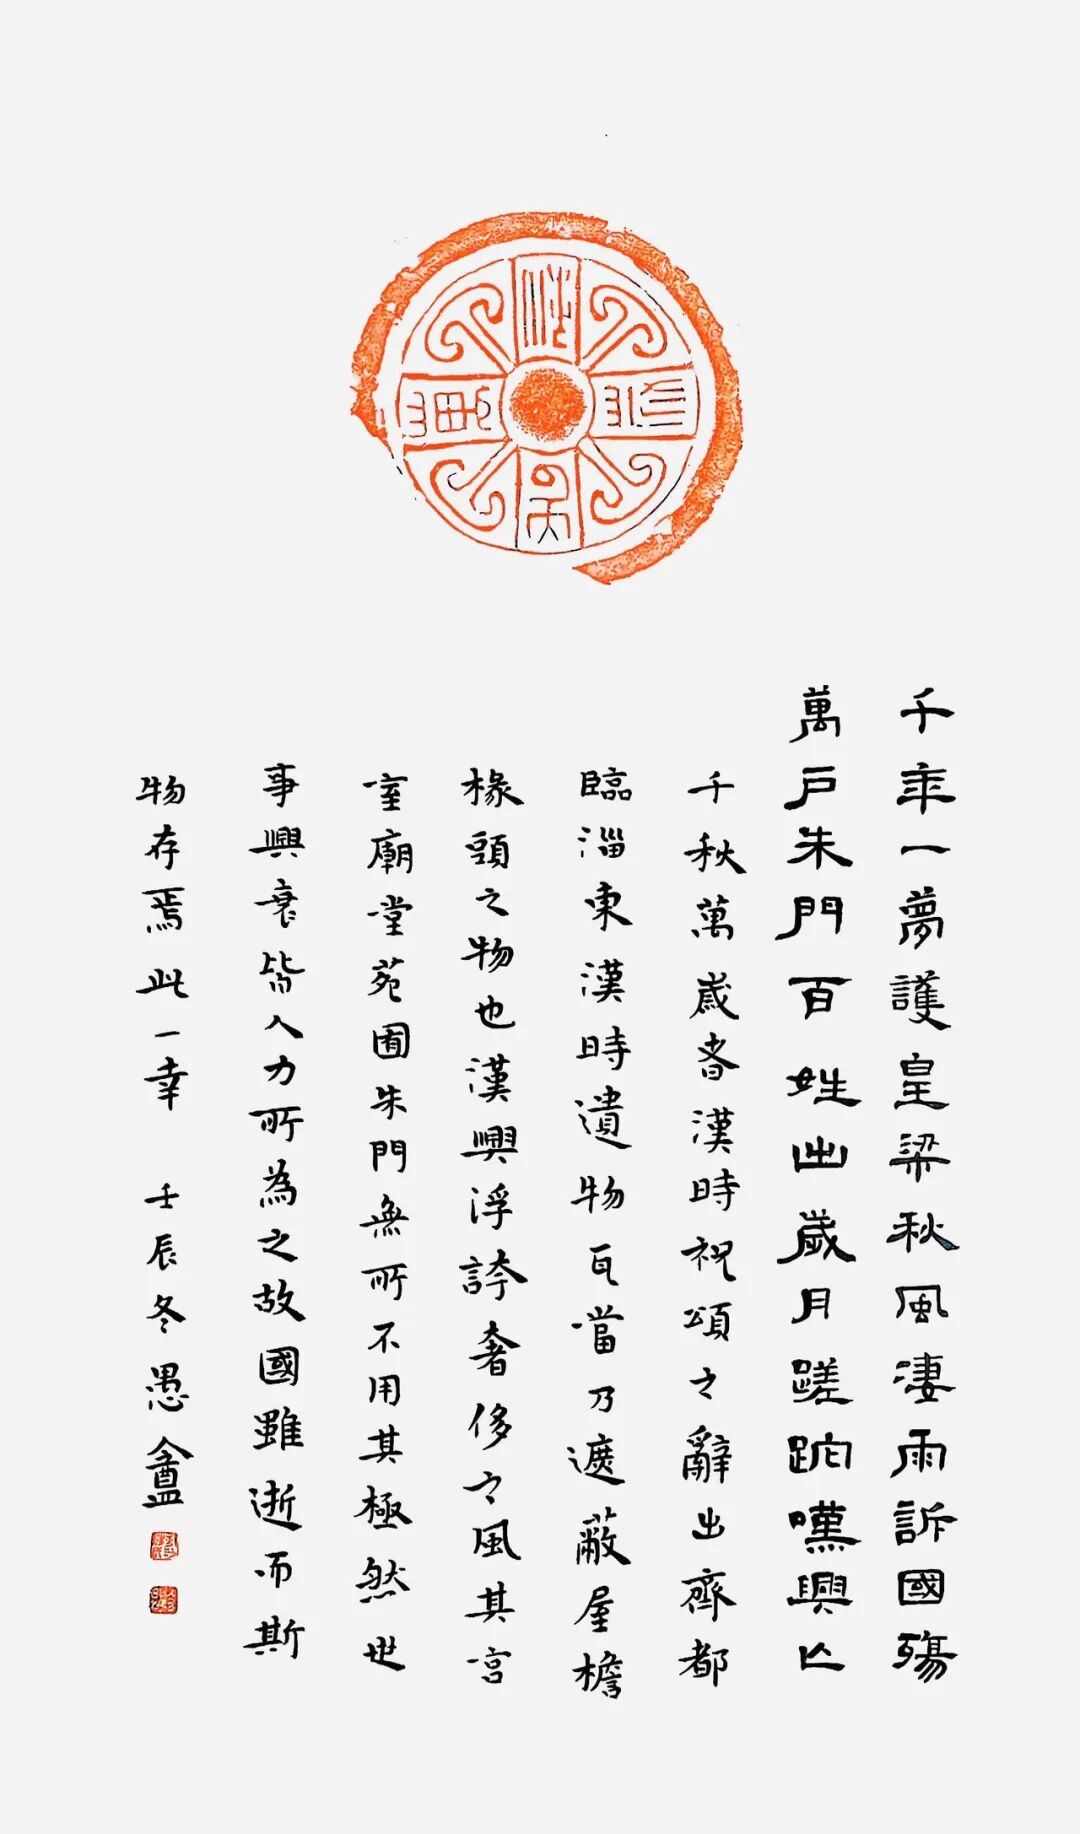 千年一夢護皇梁秋風淒雨訴國殤
萬戶朱門百姓出歲月蹉跎嘆興亡
千秋萬歲者漢時祝頌之辭出齊都
臨淄東漢時遺物瓦當乃遮蔽屋檐
椽頭之物也漢興浮誇奢侈之風其宮
室廟堂苑囿朱門無所不用其極然世
事興衰皆人力所為之故國雖逝而斯
物存焉此一幸 壬辰冬愚盦